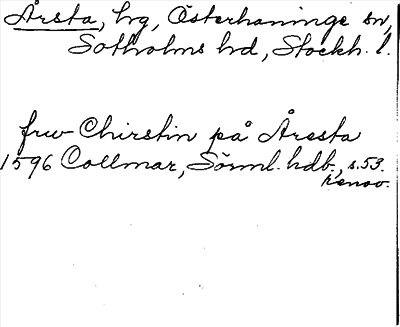 Årsta, hg, Österhaninge sn,
Sotholms hd, Stockh. l.
fru Chirstin på Åresta
1596 Collmar, Sörml. hdb., s. 53.
renov.